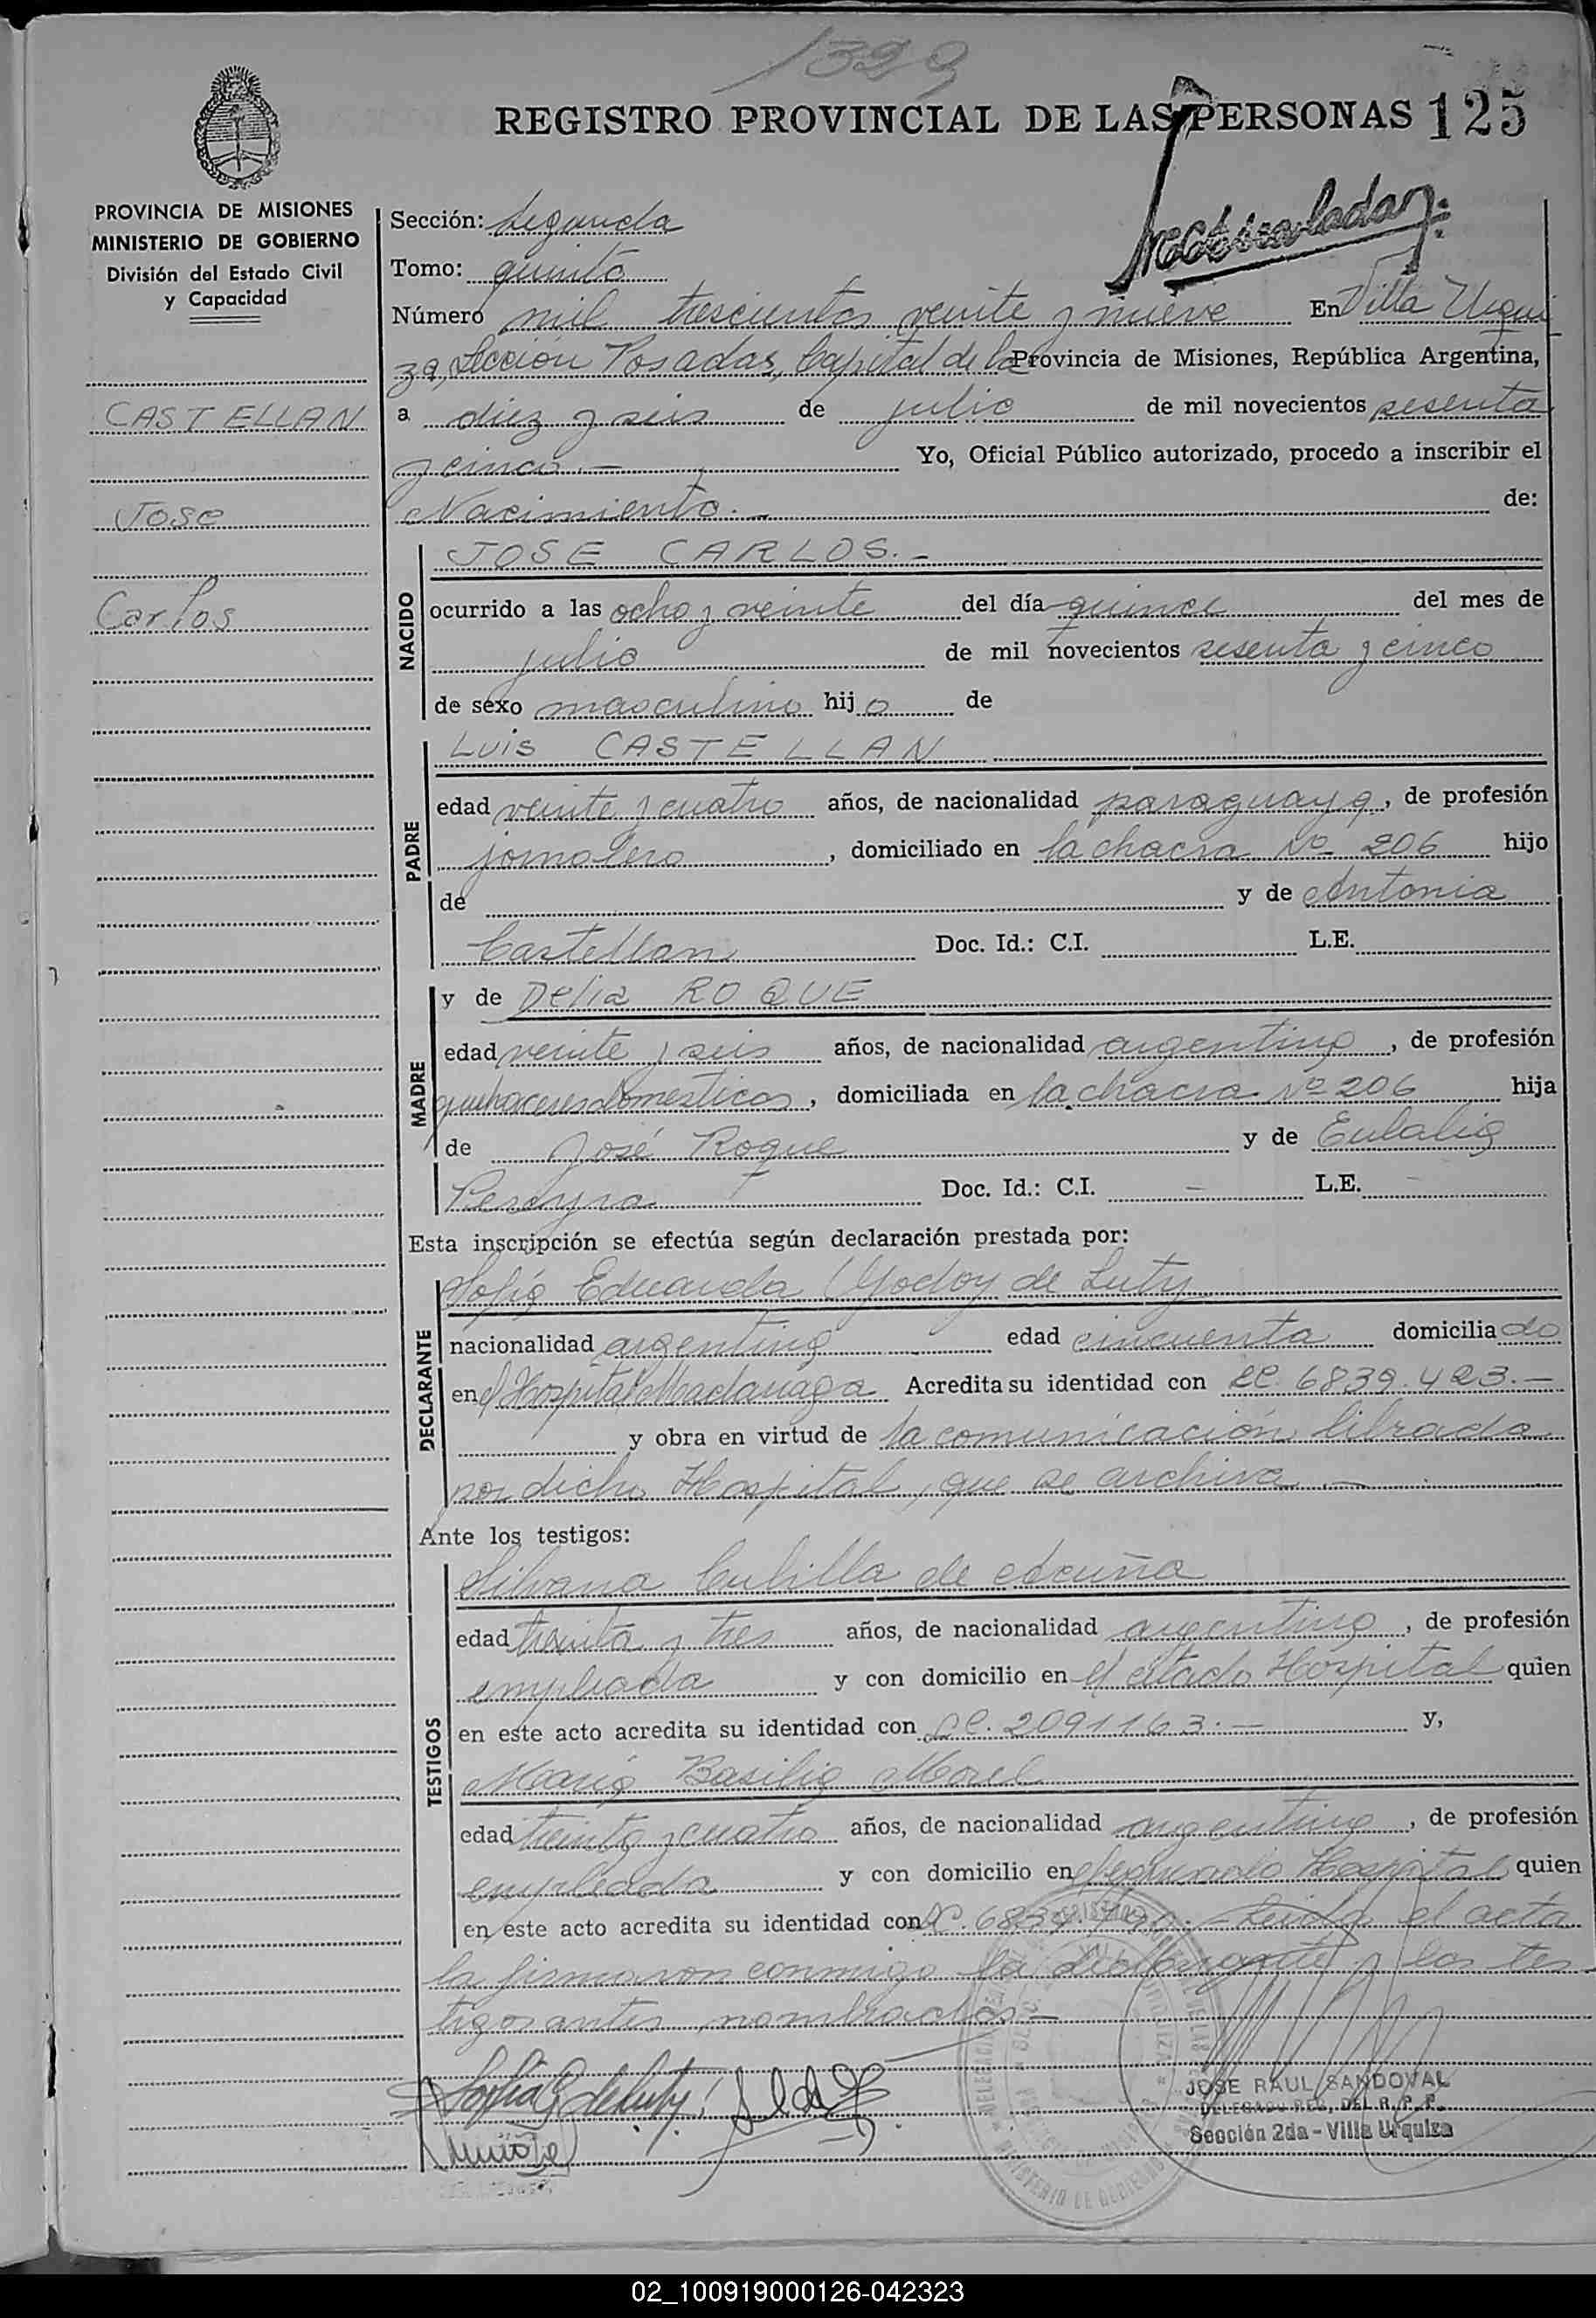 1329
REGISTRO PROVINCIAL DE LAS PERSONAS 125
PROVINCIA DE MISIONES
MINISTERIO DE GOBIERNO
División del Estado Civil
y Capacidad
CASTELLAN
Jose
Carlos
Sección: Segunda
Tomo: quinto
Número mil trescientos veinte y nueve En Villa Urqui
za, Sección Posadas, Capital de la Provincia de Misiones, República Argentina,
a diez y seis de julio de mil novecientos sesenta
y cinco.— Yo, Oficial Público autorizado, procedo a inscribir el
Nacimiento.— de:
NACIDO
JOSE CARLOS.—
ocurrido a las ocho y veinte del día quince del mes de
julio de mil novecientos sesenta y cinco
de sexo masculino hijo de
PADRE
Luis CASTELLAN
edad veinte y cuatro años, de nacionalidad paraguaya, de profesión
jornalero, domiciliado en la chacra Nº 206 hijo
de y de Antonia
Castellan Doc. Id.: C.I. L.E.
MADRE
y de Delia ROQUE
edad veinte y seis años, de nacionalidad argentina, de profesión
quehaceres domesticos, domiciliada en la chacra Nº 206 hija
de José Roque y de Eulalia
Pereyra Doc. Id.: C.I. — L.E. —
Esta inscripción se efectúa según declaración prestada por:
DECLARANTE
Sofía Eduarda Godoy de Luty
nacionalidad argentina edad cincuenta domiciliado
en el Hospital Madariaga Acredita su identidad con LC. 6839.423.—
y obra en virtud de la comunicación librada
por dicho Hospital, que se archiva.—
Ante los testigos:
TESTIGOS
Silvana Cubilla de Acuña
edad treinta y tres años, de nacionalidad argentina, de profesión
empleada y con domicilio en el citado Hospital quien
en este acto acredita su identidad con LC. 2091163.— y,
María Basilia Morel
edad treinta y cuatro años, de nacionalidad argentina, de profesión
empleada y con domicilio en el Hospital quien
en este acto acredita su identidad con LC. Leida el acta
la firmaron conmigo la declarante y los tes
tigos antes nombrados.—
JOSE RAUL SANDOVAL
DELEGADO REG. DEL R. P. P.
Sección 2da - Villa Urquiza
02_100919000126-042323